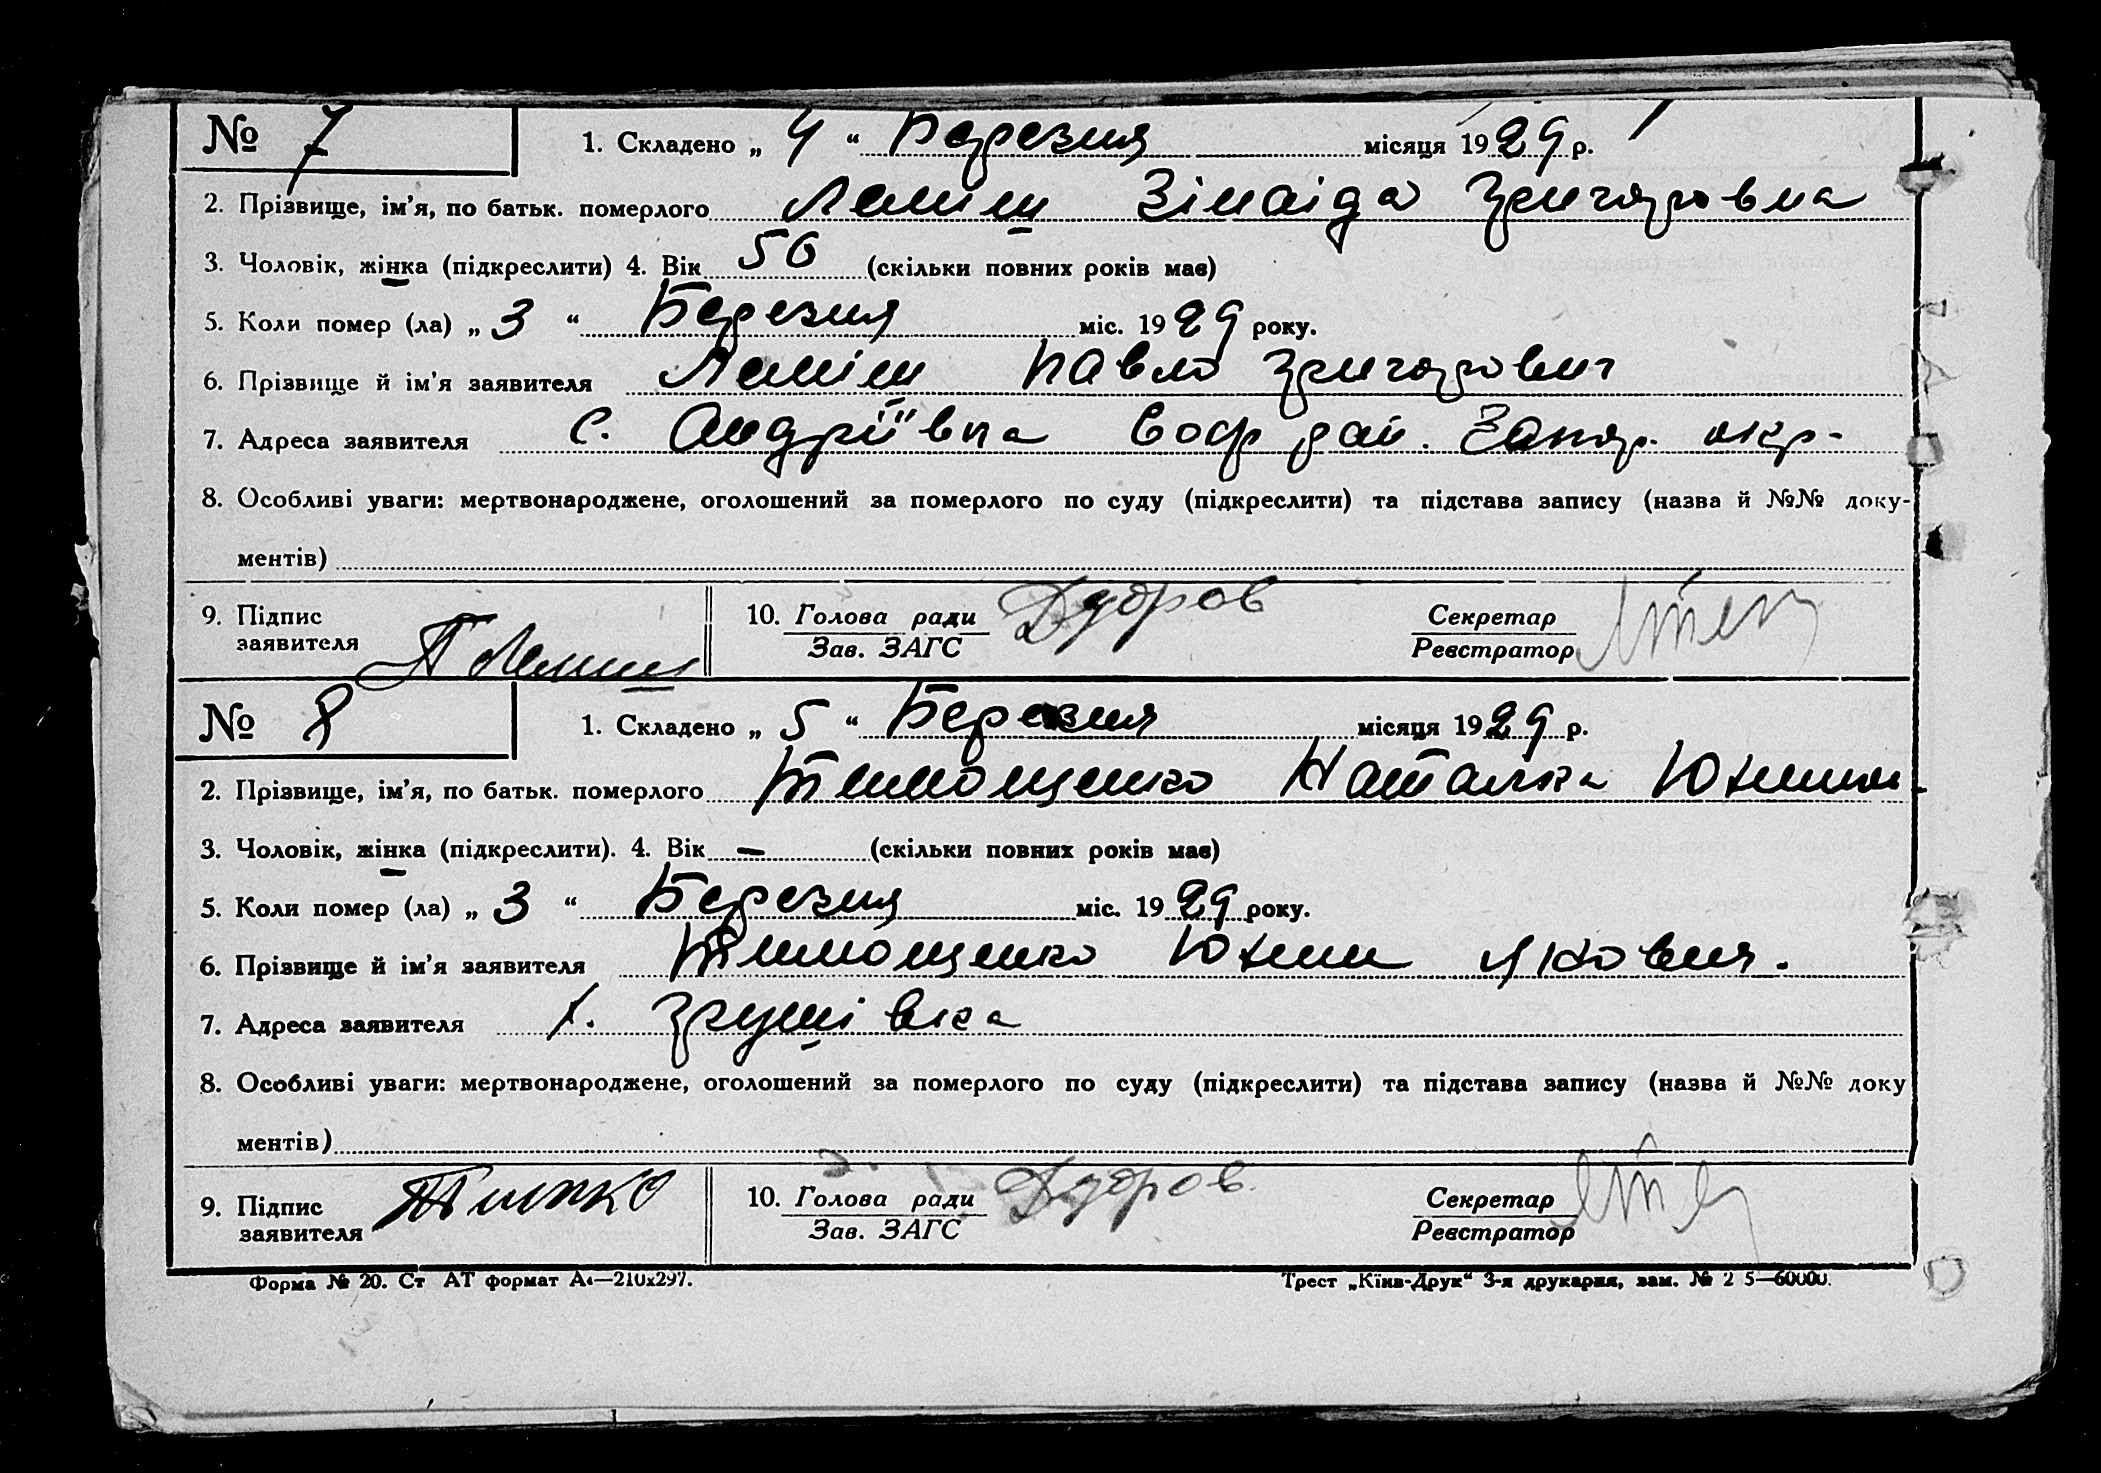 № 7 1. Складено „ 4 “ Березня місяця 1929 р.
2. Прізвище, ім’я, по батьк. померлого Леміш Зінаіда Григоровна
3. Чоловік, жінка (підкреслити) 4. Вік 56 (скільки повних років має)
5. Коли помер (ла) „ 3 “ Березня міс. 1929 року.
6. Прізвище й ім’я заявителя Леміш Павло Григорович
7. Адреса заявителя с. Андріївка Соф рай. Запор. окр.
8. Особливі уваги: мертвонароджене, оголошений за померлого по суду (підкреслити) та підстава запису (назва й №№ доку-
ментів)
9. Підпис заявителя П Лемиш 10. Голова ради Зав. ЗАГС Секретар Реєстратор
№ 8 1. Складено „ 5 “ Березня місяця 1929 р.
2. Прізвище, ім’я, по батьк. померлого Тимощенко Наталка
3. Чоловік, жінка (підкреслити). 4. Вік – (скільки повних років має)
5. Коли помер (ла) „ 3 “ Березня міс. 1929 року.
6. Прізвище й ім’я заявителя Тимощенко Юхим
7. Адреса заявителя х. Грушівка
8. Особливі уваги: мертвонароджене, оголошений за померлого по суду (підкреслити) та підстава запису (назва й №№ доку
ментів)
9. Підпис заявителя 10. Голова ради Зав. ЗАГС Секретар Реєстратор
Форма № 20. Ст АТ формат А4—210х297. Трест „Київ-Друк“ 3-я друкарня, зам. № 2 5—60000.